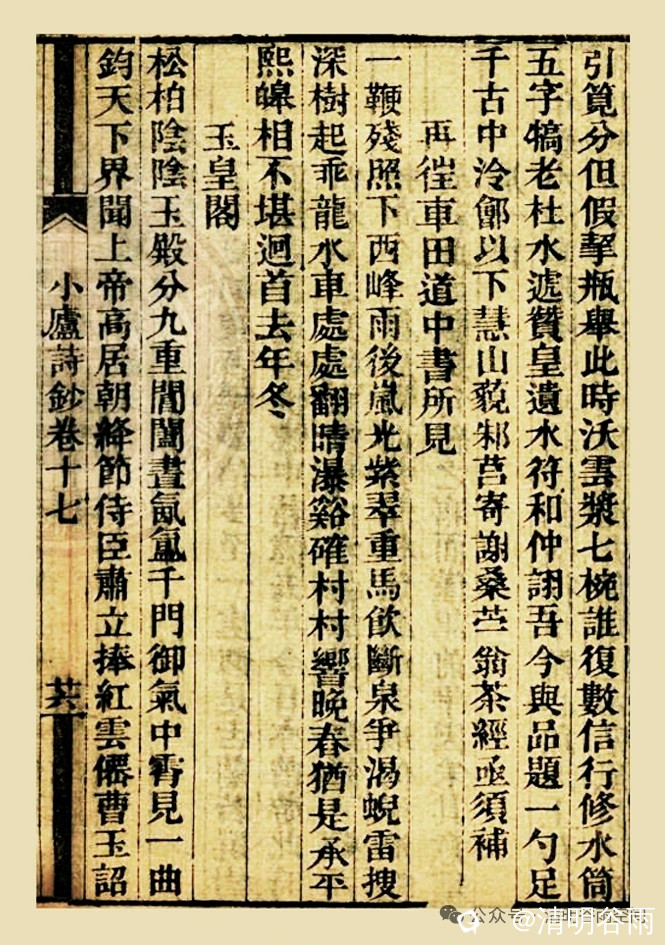 引筧分但假挈瓶舉此時沃雲漿七椀誰復數信行修水筒
五字犒老杜水遞贊皇遺水符和仲詡吾今與品題一勺足
千古中泠鄶以下慧山藐邾莒寄謝桑苧翁茶經亟須補
再徃車田道中書所見
一鞭殘照下西峰雨後嵐光紫翠重馬飲斷泉爭渴蜺雷搜
深樹起乖龍水車處處翻晴瀑谿碓村村響晚舂猶是承平
熙皞相不堪迴首去年冬
玉皇閣
松柏陰陰玉殿分九重閶闔晝氤氳千門御氣中霄見一曲
鈞天下界聞上帝高居朝絳節侍臣肅立捧紅雲僊曹玉詔
小廬詩鈔卷十七
公众号·清明谷雨空间
@清明谷雨